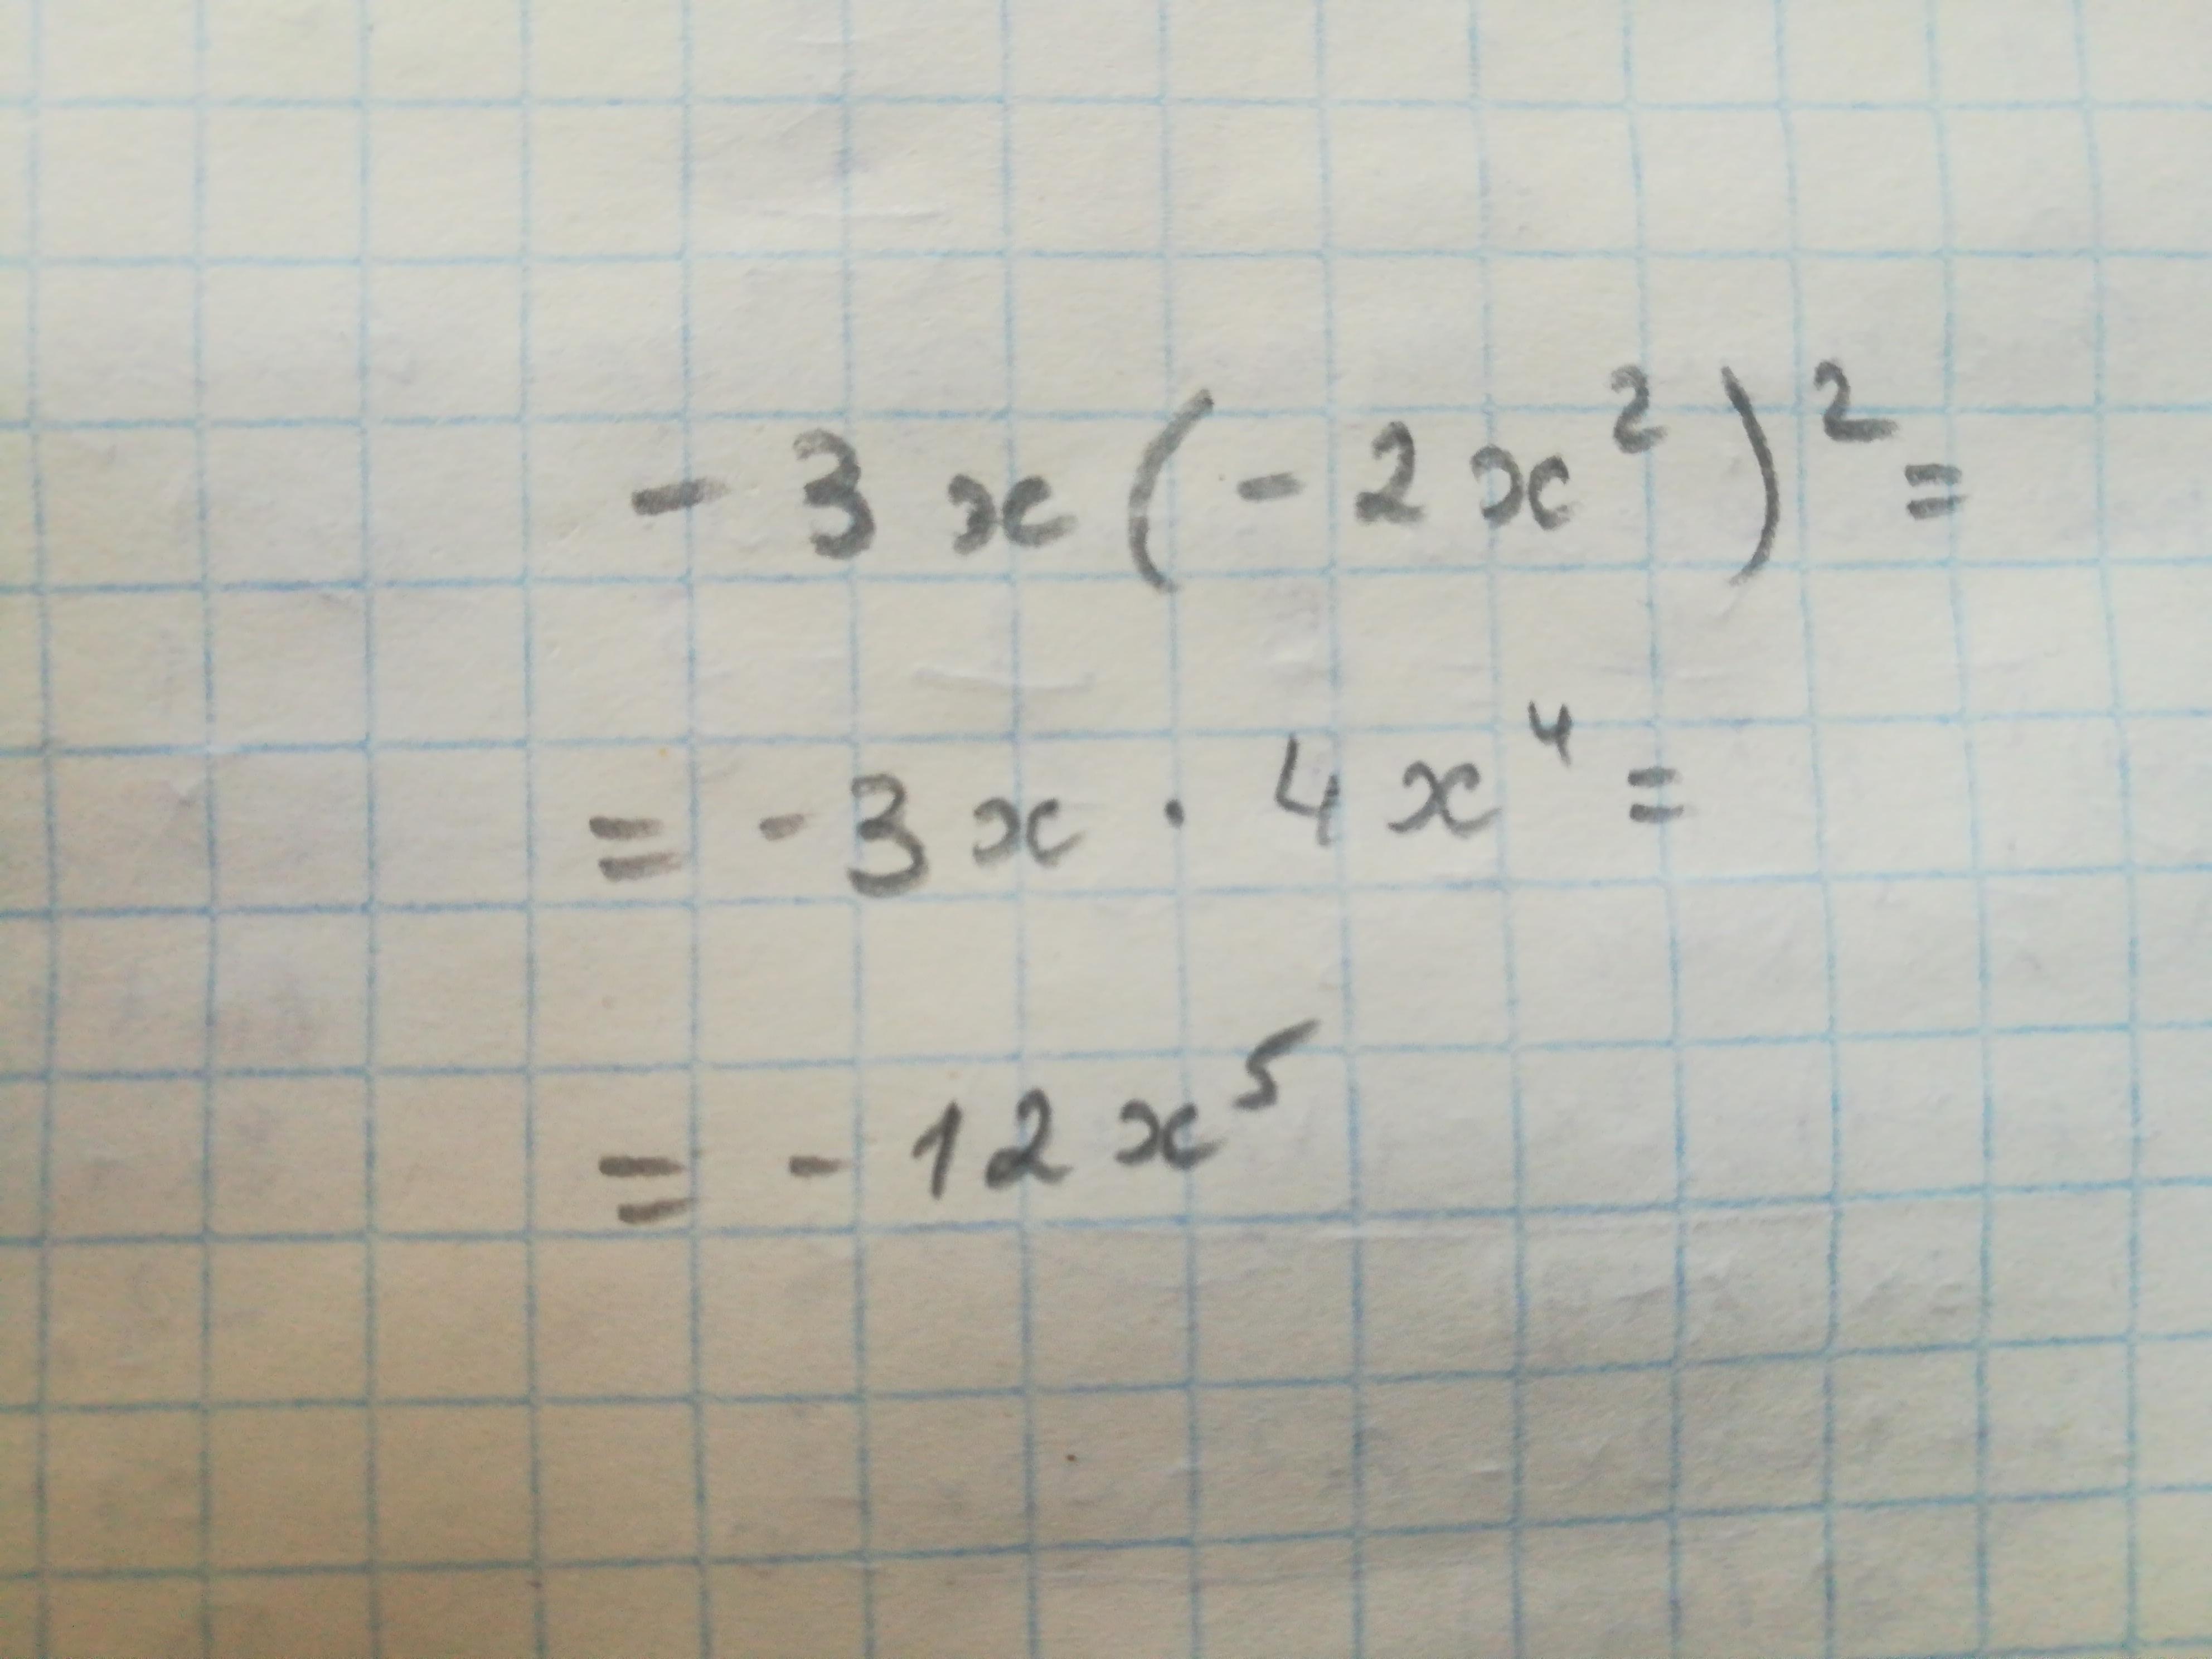 - 3x(-2x²)² =
= - 3x · 4x⁴ =
= - 12x⁵